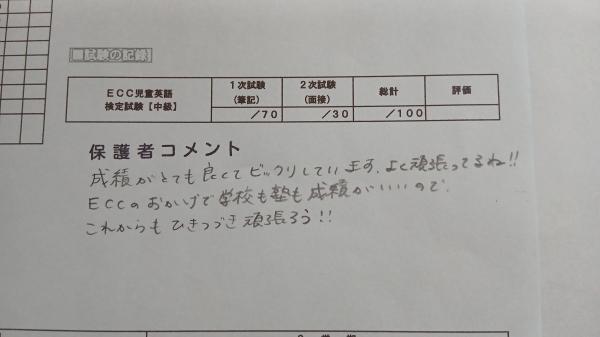 試験の記録
ECC児童英語
検定試験【中級】
1次試験
(筆記)
2次試験
(面接)
総計
評価
/70
/30
/100
保護者コメント
成績がとても良くてビックリしています。よく頑張ってるね!!
ECCのおかげで学校も塾も成績がいいので、
これからもひきつづき頑張ろう!!